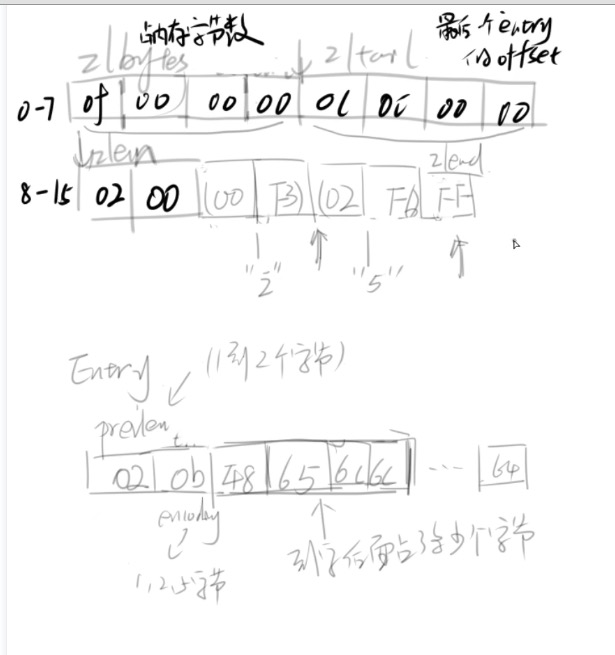 占内存字节数
最后个entry
的offset
zlbytes zltail
0-7 0f 00 00 00 0c 00 00 00
zllen
zlend
8-15 02 00 (00 F3) (02 F6 FF
"2" "5"
Entry (1到2个字节)
prevlen
02 0b 48 65 6c 6c ... 64
encoding
1,2,5字节